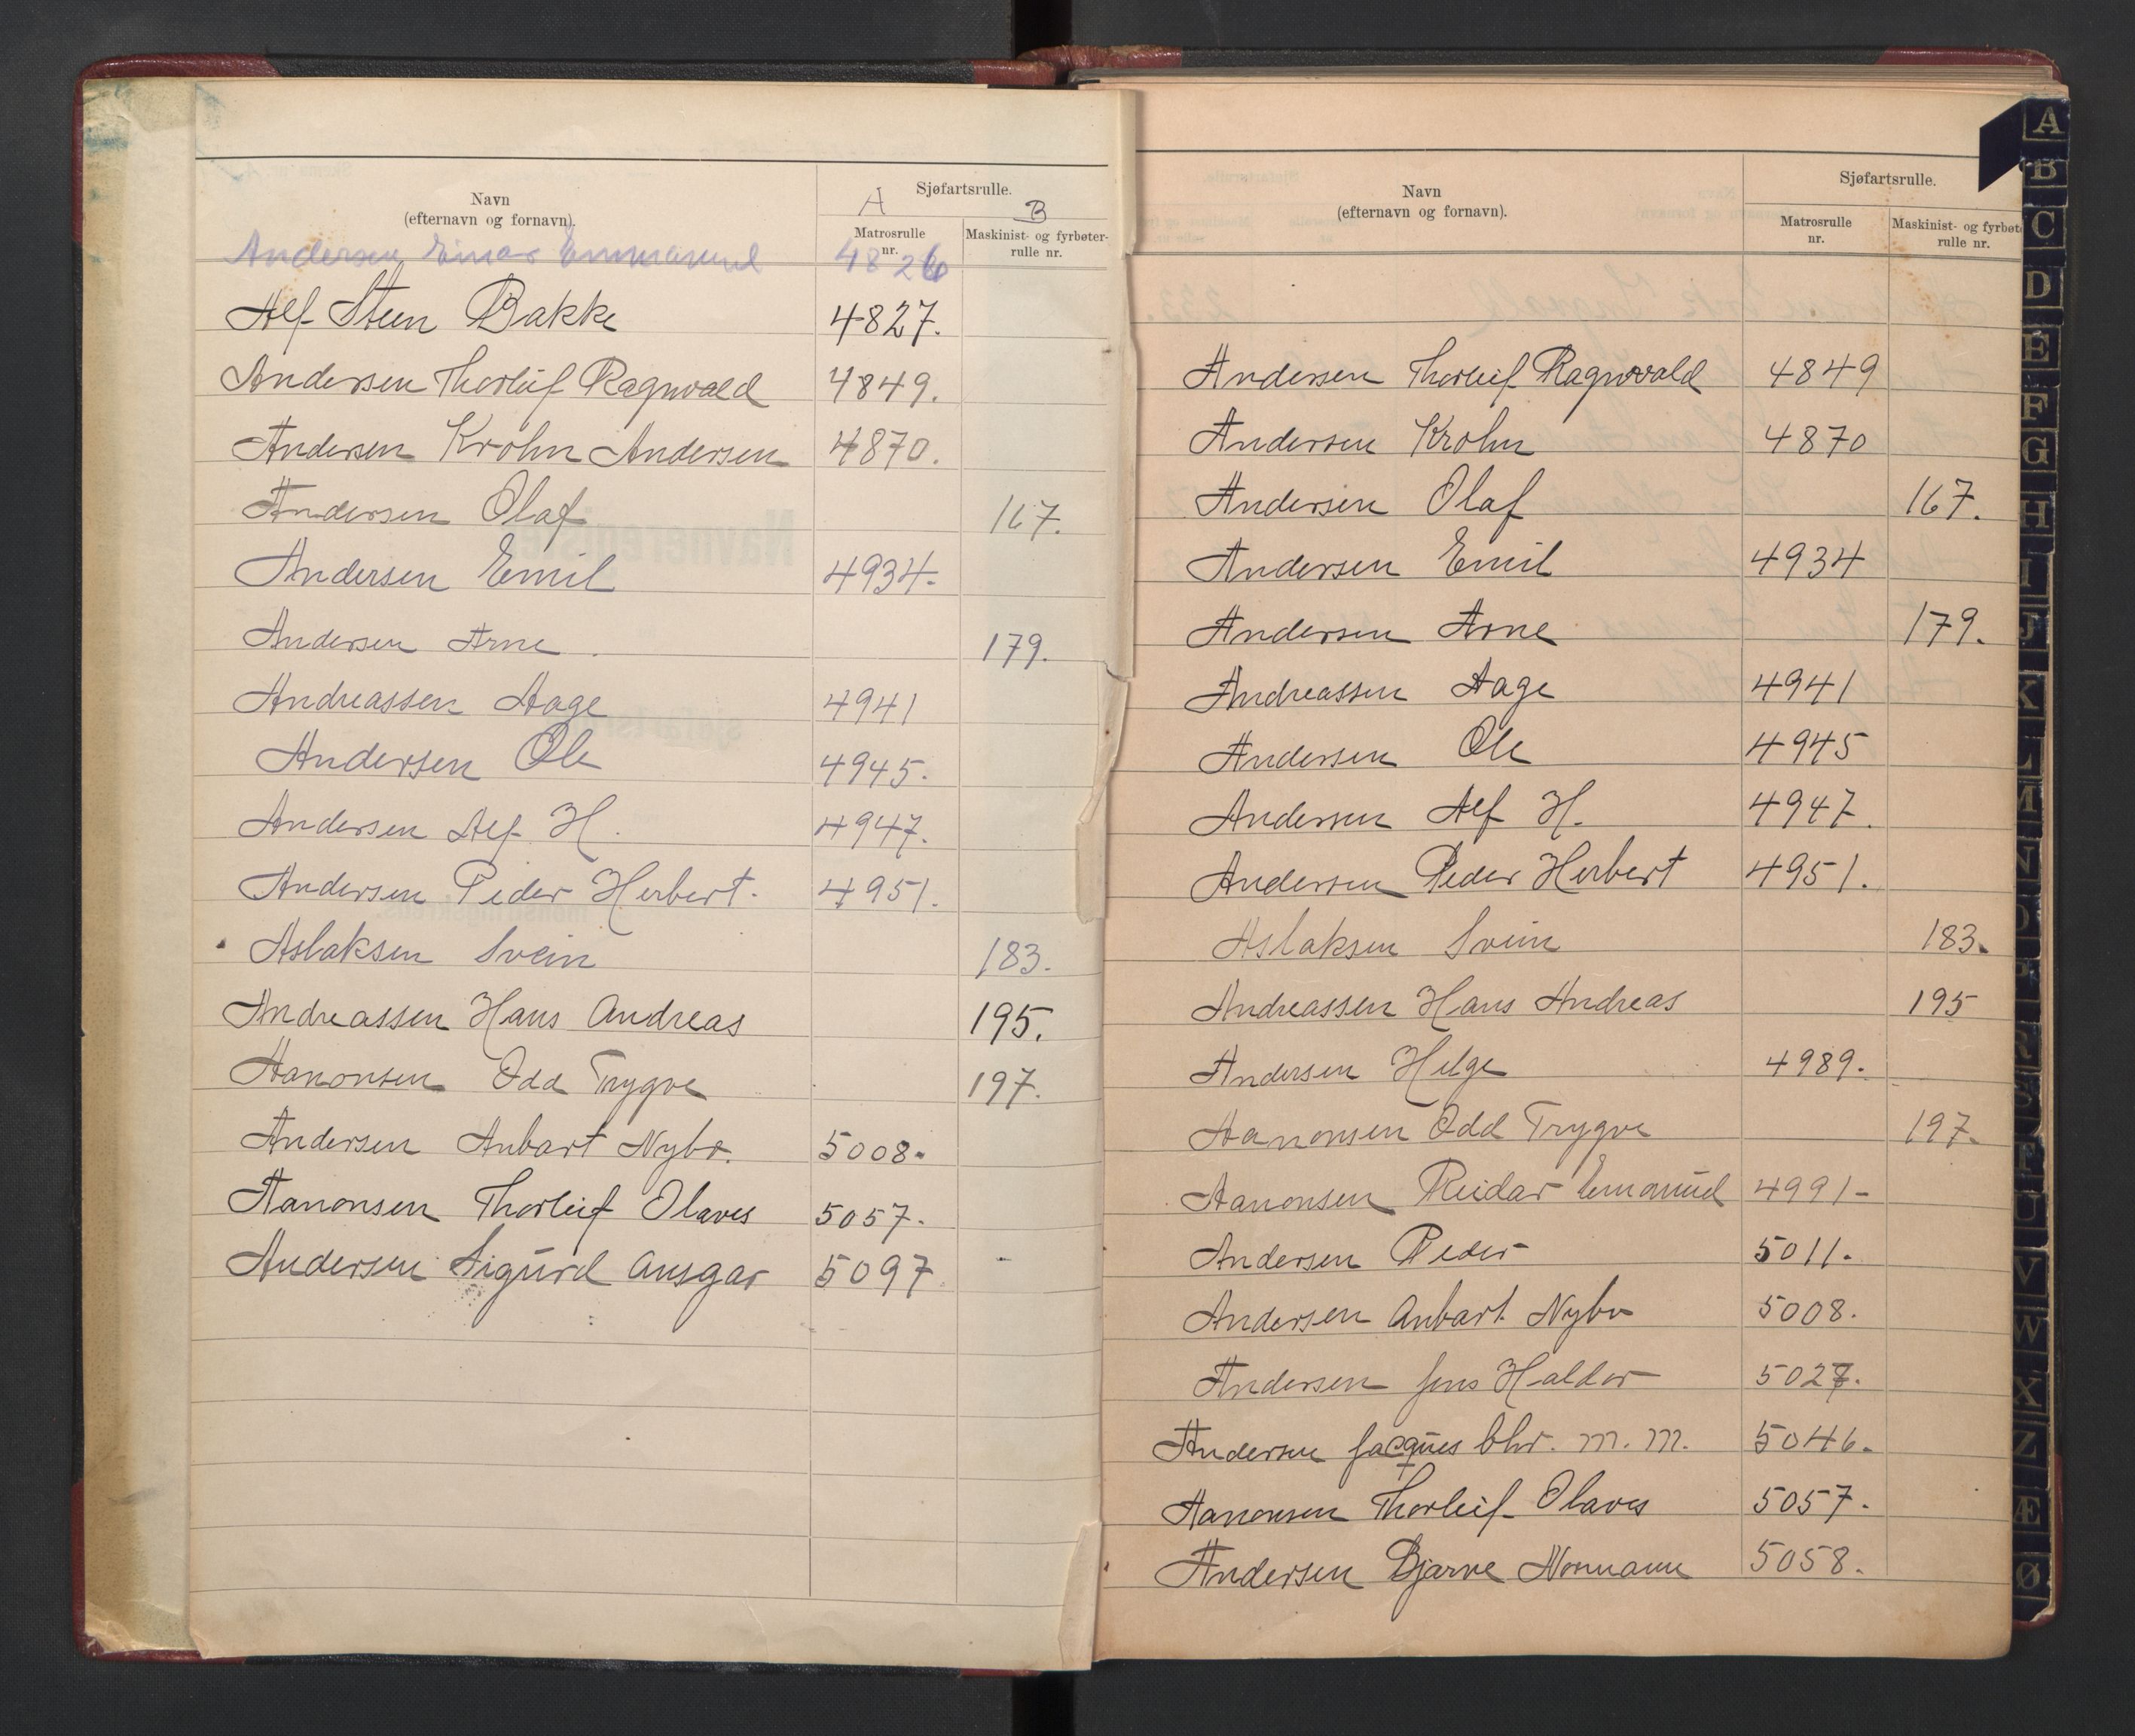 Navn
(efternavn og fornavn).
Sjøfartsrulle.
A B
Matrosrulle
nr.
Maskinist- og fyrbøter-
rulle nr.
Andersen Einar Emmanuel 4826
Alf Steen Bakke 4827.
Andersen Thorleif Ragnvald 4849.
Andersen Krohn Andersen 4870.
Andersen Olaf 167.
Andersen Emil 4934.
Andersen Arne. 179.
Andreassen Aage 4941
Andersen Ole 4945.
Andersen Alf H. 4947.
Andersen Peder Herbert. 4951.
Aslaksen Svein 183.
Andreassen Hans Andreas 195.
Aanonsen Odd Trygve 197.
Andersen Anbart Nybo. 5008.
Aanonsen Thorleif Olaves 5057.
Andersen Sigurd Ansgar 5097
Navn
(efternavn og fornavn).
Sjøfartsrulle.
Matrosrulle
nr.
Maskinist- og fyrbøt
rulle nr.
Andersen Thorleif Ragnvald 4849
Andersen Krohn 4870
Andersen Olaf 167.
Andersen Emil 4934
Andersen Arne 179.
Andreassen Aage 4941
Andersen Ole 4945
Andersen Alf H. 4947.
Andersen Peder Herbert 4951.
Aslaksen Svein 183.
Andreassen Hans Andreas 195
Andersen Helge 4989.
Aanonsen Odd Trygve 197.
Aanonsen Reidar Emanuel 4991-
Andersen Peder 5011.
Andersen Anbart. Nybo 5008.
Andersen Jens Haldor 5027.
Andersen Jacques Chr. M. M. 5046.
Aanonsen Thorleif Olaves 5057.
Andersen Bjarne Normann 5058.
A
B
C
D
E
F
G
H
I
J
K
L
M
N
O
P
R
S
T
U
V
W
X
Z
Æ
Ø